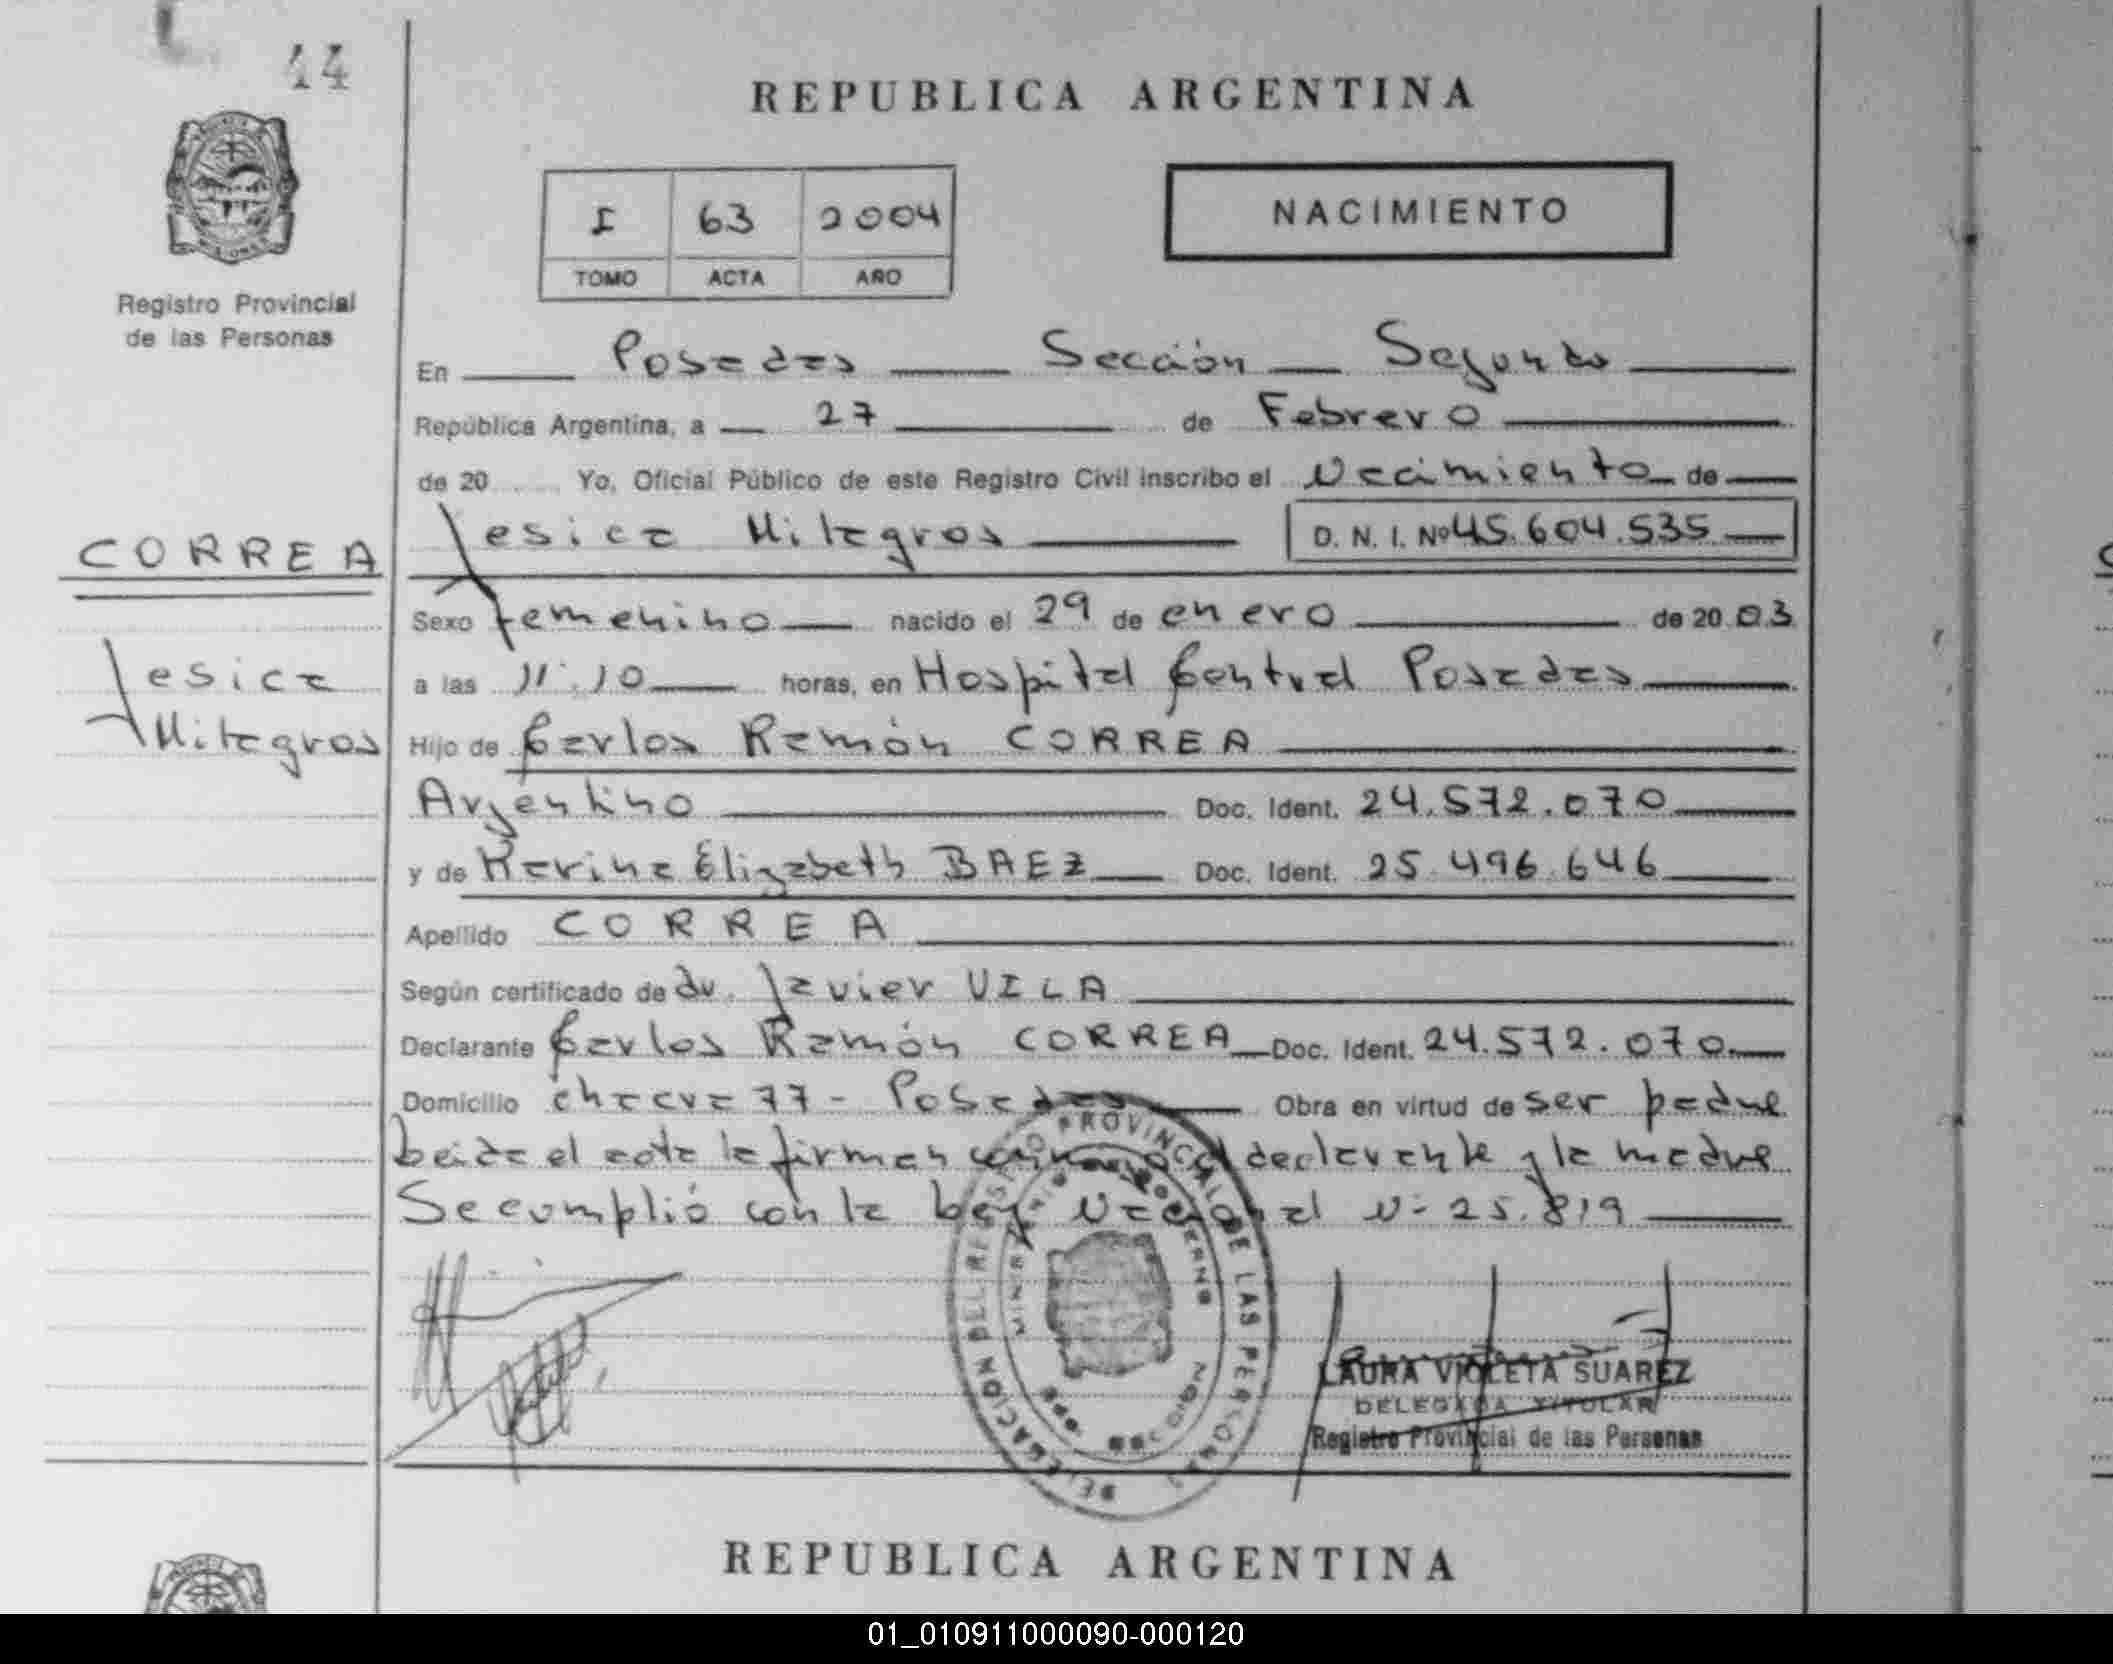 44
REPUBLICA ARGENTINA
I 63 2004
TOMO ACTA AÑO
NACIMIENTO
Registro Provincial
de las Personas
En Posadas Sección Segunda
República Argentina, a 27 de Febrero
de 20 Yo, Oficial Público de este Registro Civil inscribo el Nacimiento de
Jesica Milagros D. N. I. Nº 45.604.535
CORREA
Jesica
Milagros
Sexo femenino nacido el 29 de enero de 20 03
a las 11:10 horas, en Hospital Central Posadas
Hijo de Carlos Ramón CORREA
Argentino Doc. Ident. 24.572.070
y de Karina Elizabeth BAEZ Doc. Ident. 25.496.646
Apellido CORREA
Según certificado de dr. Javier VILA
Declarante Carlos Ramón CORREA Doc. Ident. 24.572.070
Domicilio chacra 77 - Posadas Obra en virtud de ser padre
Leida el acta la firman declarante y la madre
Se cumplió con la Ley Nacional Nº 25.819
DELEGACION DEL REGISTRO PROVINCIAL DE LAS PERSONAS
LAURA VIOLETA SUAREZ
DELEGADA TITULAR
Registro Provincial de las Personas
REPUBLICA ARGENTINA
01_010911000090-000120